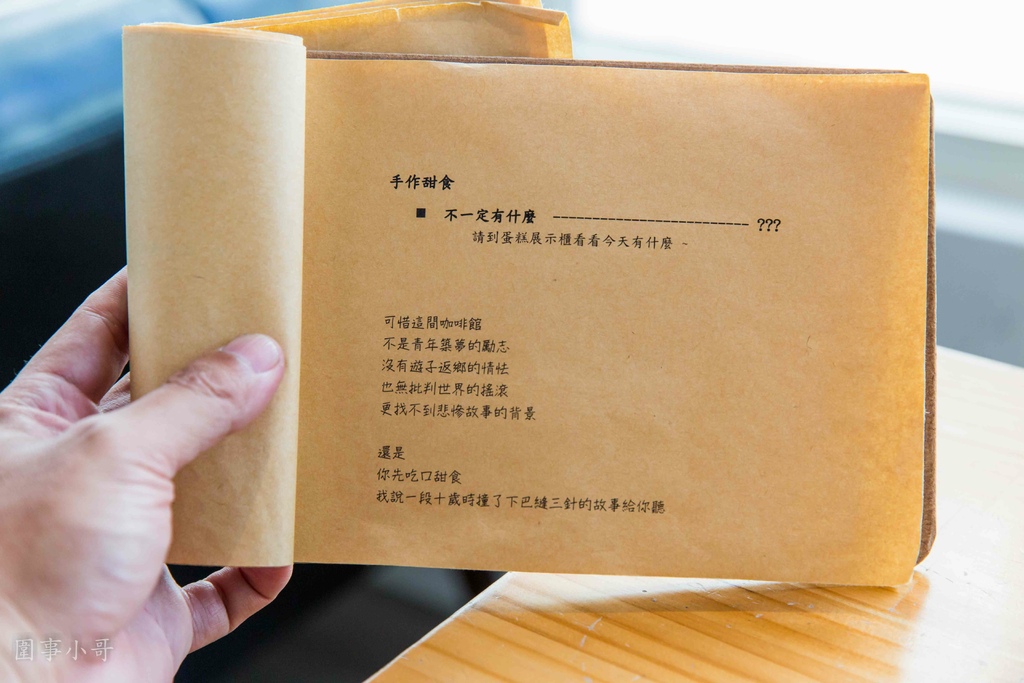 手作甜食
■ 不一定有什麼 ------------------------- ???
請到蛋糕展示櫃看看今天有什麼 ~
可惜這間咖啡館
不是青年築夢的勵志
沒有遊子返鄉的情怯
也無批判世界的搖滾
更找不到悲慘故事的背景
還是
你先吃口甜食
我說一段十歲時撞了下巴縫三針的故事給你聽
圍事小哥